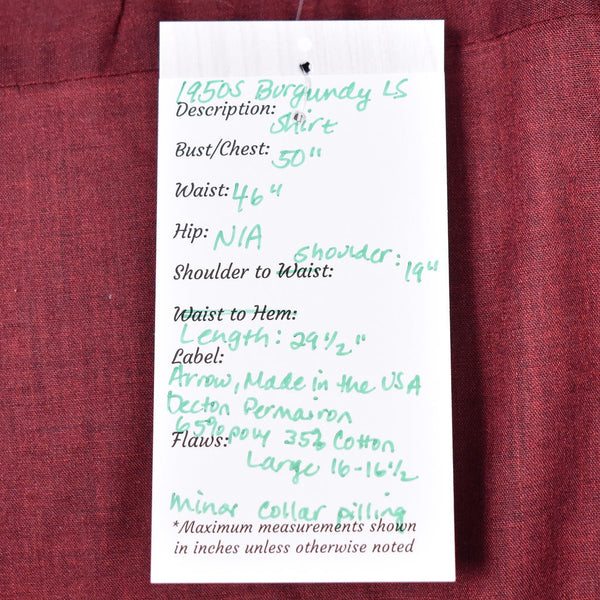 1950s Burgundy LS
Description:
Shirt
Bust/Chest: 50"
Waist: 46"
Hip: N/A
Shoulder:
Shoulder to Waist: 19"
Waist to Hem:
Length: 29 1/2"
Label:
Arrow, Made in the USA
Decton Permairon
65% poly 35% Cotton
Flaws:
Large 16-16 1/2
minor collar pilling
*Maximum measurements shown
in inches unless otherwise noted